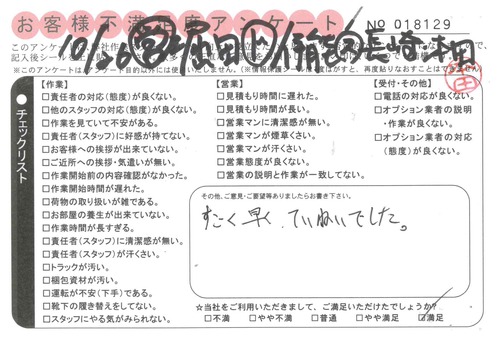 お客様不満足度アンケート
No 018129
※このアンケートはアンケート目的以外には使いたしません。
チェックリスト
【作業】
□責任者の対応(態度)が良くない。
□他のスタッフの対応(態度)が良くない。
□作業を見ていて不安がある。
□責任者(スタッフ)に好感が持てない。
□お客様への挨拶が出来ていない。
□ご近所への挨拶・気遣いが無い。
□作業開始前の内容確認がなかった。
□作業開始時間が遅れた。
□荷物の取り扱いが雑である。
□お部屋の養生が出来ていない。
□作業時間が長すぎる。
□責任者(スタッフ)に清潔感が無い。
□責任者(スタッフ)が汗くさい。
□トラックが汚い。
□梱包資材が汚い。
□運転が不安(下手)である。
□靴下の履き替えをしていない。
□スタッフにやる気がみられない。
【営業】
□見積もり時間に遅れた。
□見積もり時間が長い。
□営業マンに清潔感が無い。
□営業マンが煙草くさい。
□営業マンが汗くさい。
□営業態度が良くない。
□営業の説明と作業が一致してない。
【受付・その他】
□電話の対応が良くない。
□オプション業者の説明
・作業が良くない。
□オプション業者の対応
(態度)が良くない。
その他、ご意見・ご要望等ありましたらお書き下さい。
すごく早く、ていねいでした。
☆当社をご利用いただきまして、ご満足いただけたでしょうか?
□不満 □やや不満 □普通 □やや満足 ☑満足